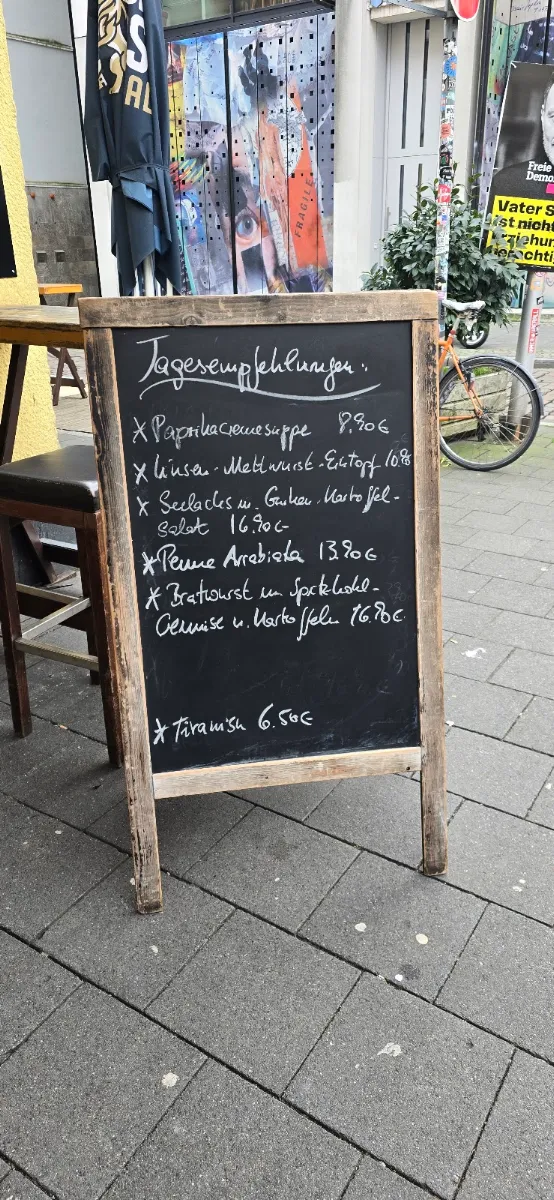 SAL
FRAGILE
Freie
Demo
Vater S
ist nicht
Tagesempfehlungen.
* Paprikacremesuppe 8.90€
* Linsen-Mettwurst-Eintopf
* Seelachs m. Gurken-Kartoffel-
salat 16.90€
* Penne Arrabiata 13.90€
* Bratwurst m Spitzkohl-
Gemüse u. Kartoffeln 16.90€
* Tiramisu 6.50€